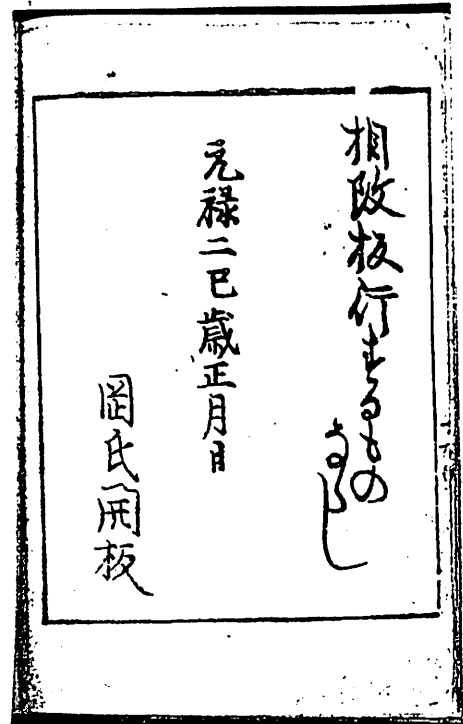 相改板行するもの
ならし
元禄二巳歳正月日
岡氏開板